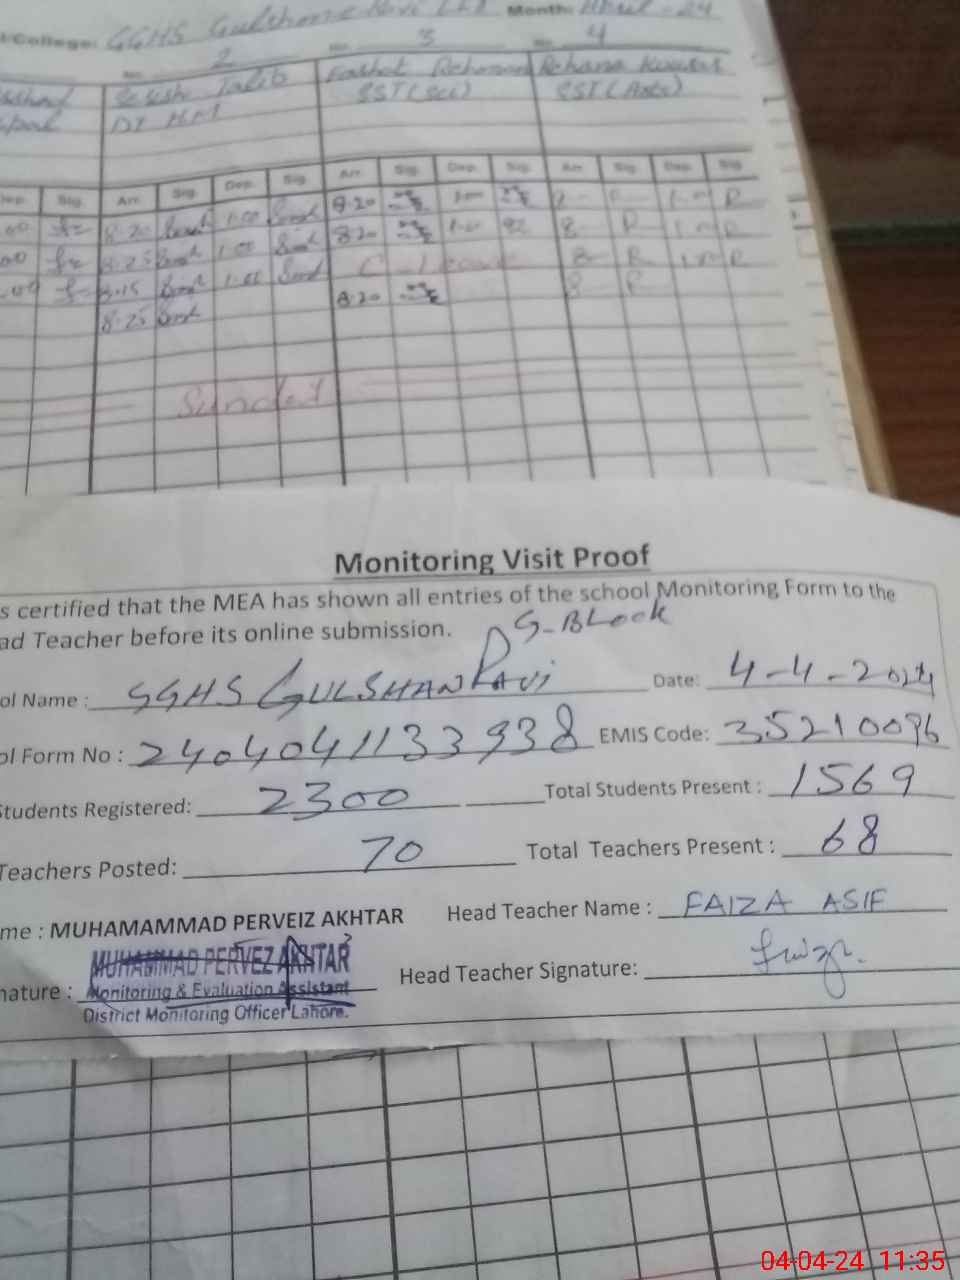 College: GGHS Gulshan-e-Ravi LHR Month: April-24
2 No. 3 No. 4
Talib Rehman Rehana Kausar
SST (Sci) SST (Arts)
Dep. Sig. Arr. Sig. Dep. Sig. Arr. Sig. Dep. Sig. Arr. Sig. Dep. Sig.
.00 8.20 1.00 8.20 1.00 8 R 1.00 R
.00 8.25 1.00 8.20 1.00 8 R 1.00 R
.00 8.15 1.00 C-leave 8 R 1.00 R
8.25 8.20 8 R
Sunday
Monitoring Visit Proof
s certified that the MEA has shown all entries of the school Monitoring Form to the
ad Teacher before its online submission.
G-BLock
ol Name : GGHS GULSHAN RAVI Date: 4-4-2024
ol Form No : 2404041133938 EMIS Code: 35210096
Students Registered: 2300 Total Students Present : 1569
Teachers Posted: 70 Total Teachers Present : 68
me : MUHAMAMMAD PERVEIZ AKHTAR Head Teacher Name : FAIZA ASIF
nature : MUHAMMAD PERVEZ AKHTAR Head Teacher Signature:
Monitoring & Evaluation Assistant
District Monitoring Officer Lahore.
04-04-24 11:35